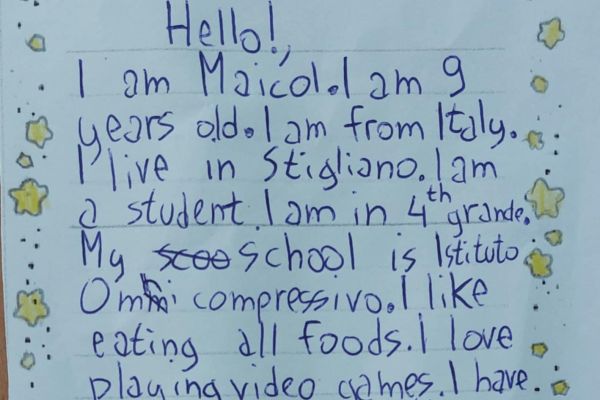 Hello!,
I am Maicol. I am 9
years old. I am from Italy.
I live in Stigliano. I am
a student. I am in 4th grande.
My scoo school is Istituto
Omni compressivo. I like
eating all foods. I love
playing video games. I have.